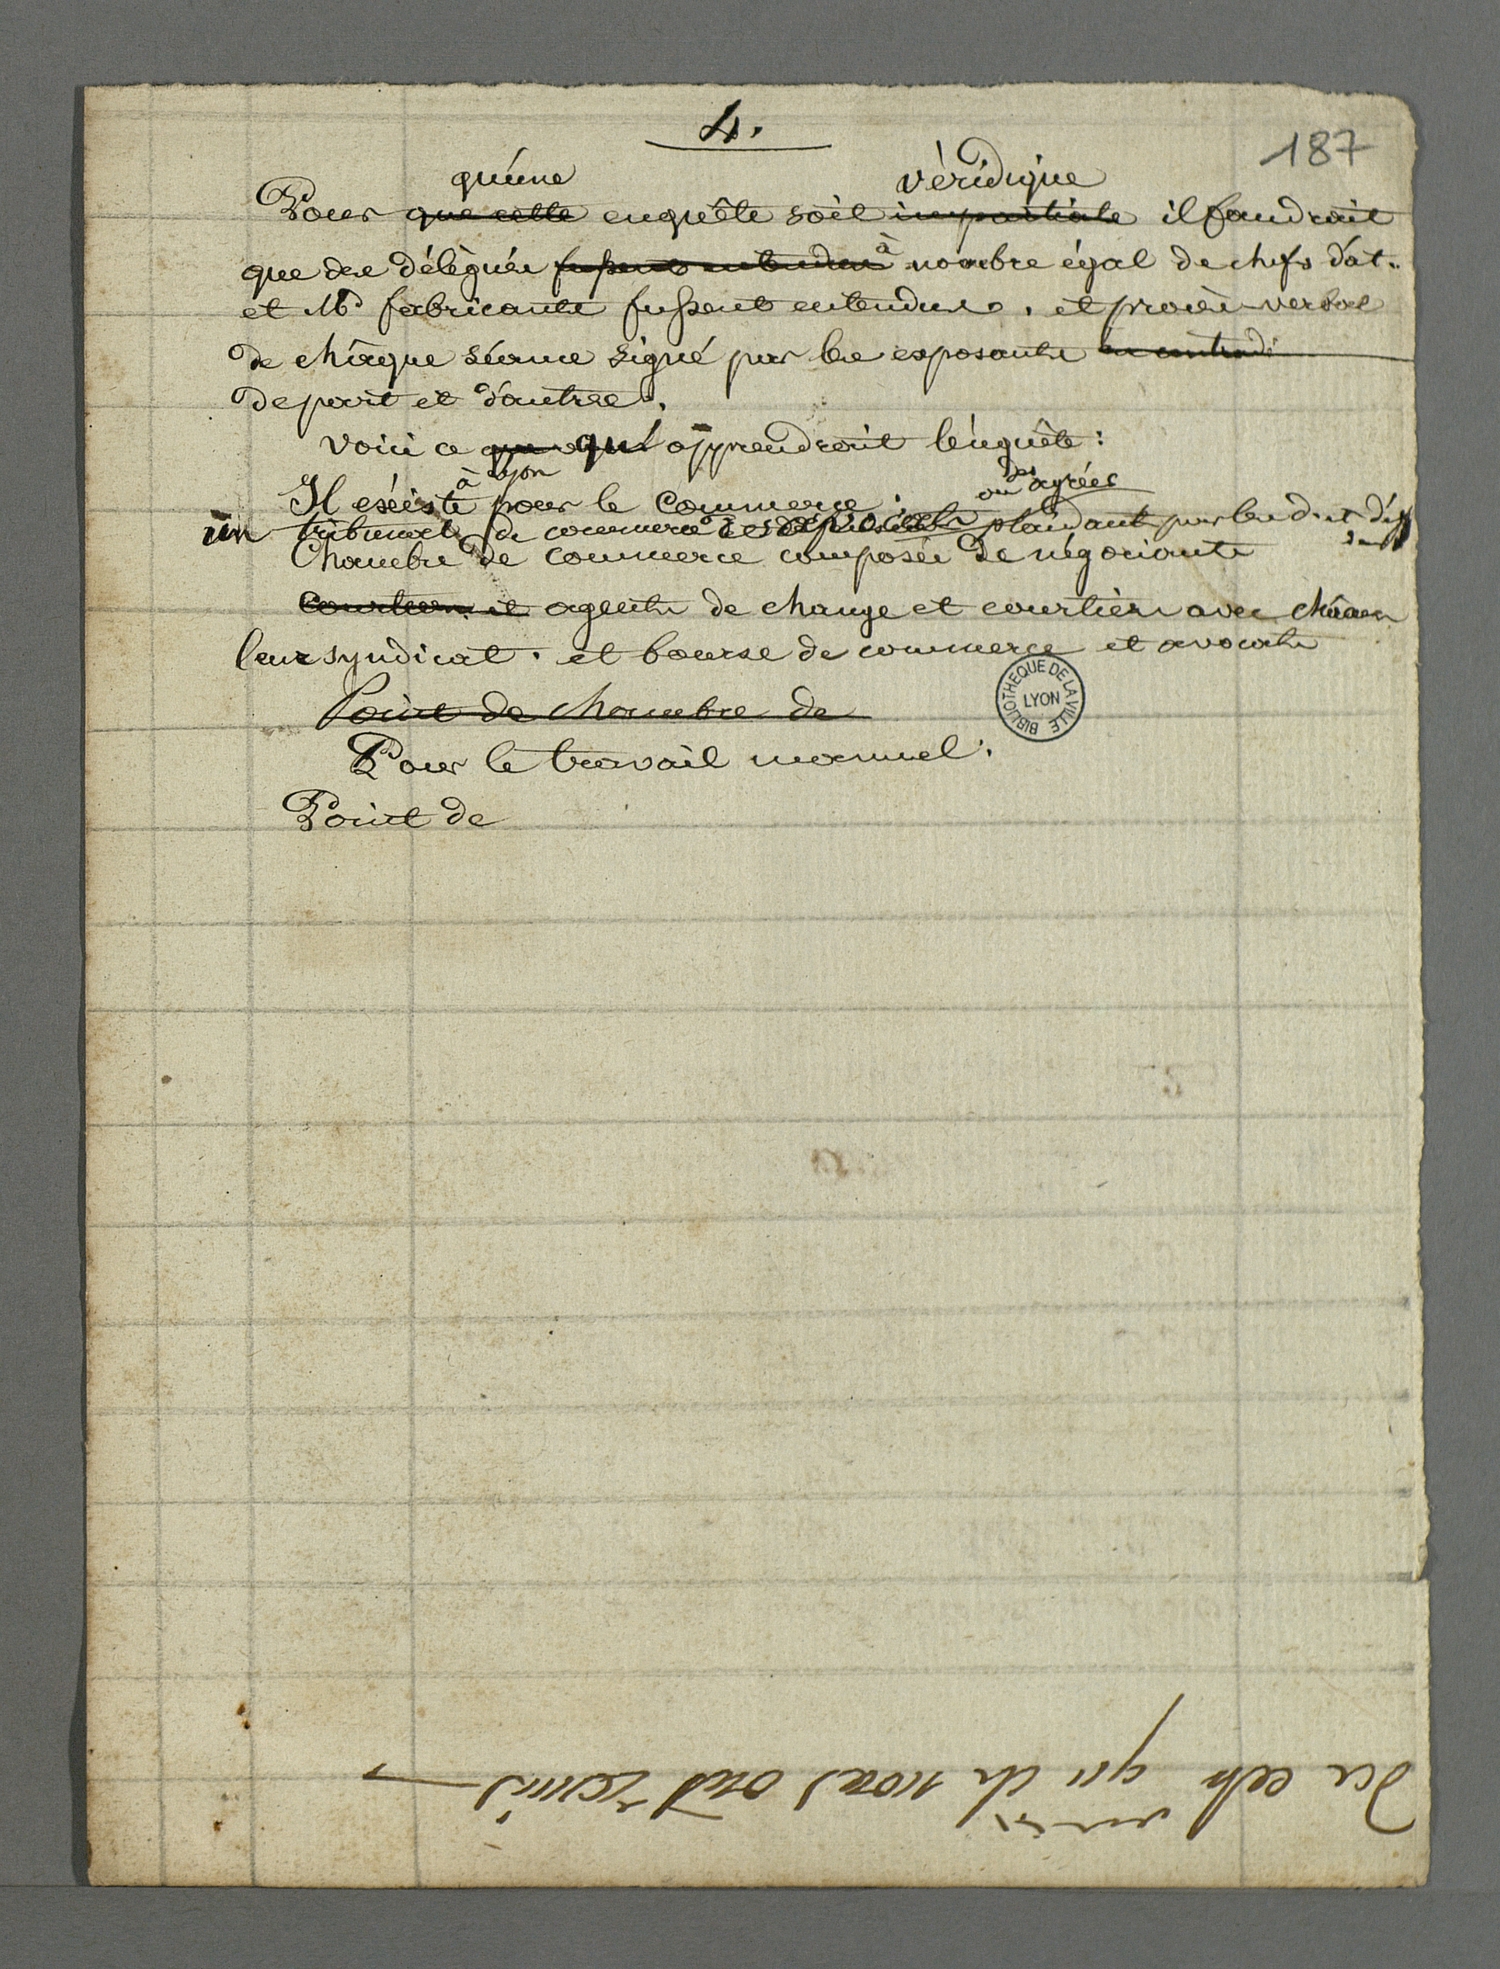 4.
187
qu'une véridique
Pour que cette enquête soit impartiale il faudrait
que des délégués fussent entendus à nombre égal de chefs d'at.
et Md fabricants fussent entendus. et procès-verbal
de chaque séance signé par les exposants
de part et d'autre.
Voici ce que qui apprendroit l'enquête:
à Lyon
Il existe pour le commerce:
ou des agréés
un tribunal de commerce plaidant par
Chambre de commerce composée de négociants
courtiers et agents de change et courtiers avec chacun
leur syndicat. et bourse de commerce et avocats
Point de chambre de
BIBLIOTHEQUE DE LA VILLE LYON
Pour le travail manuel.
Point de
nous ont remis